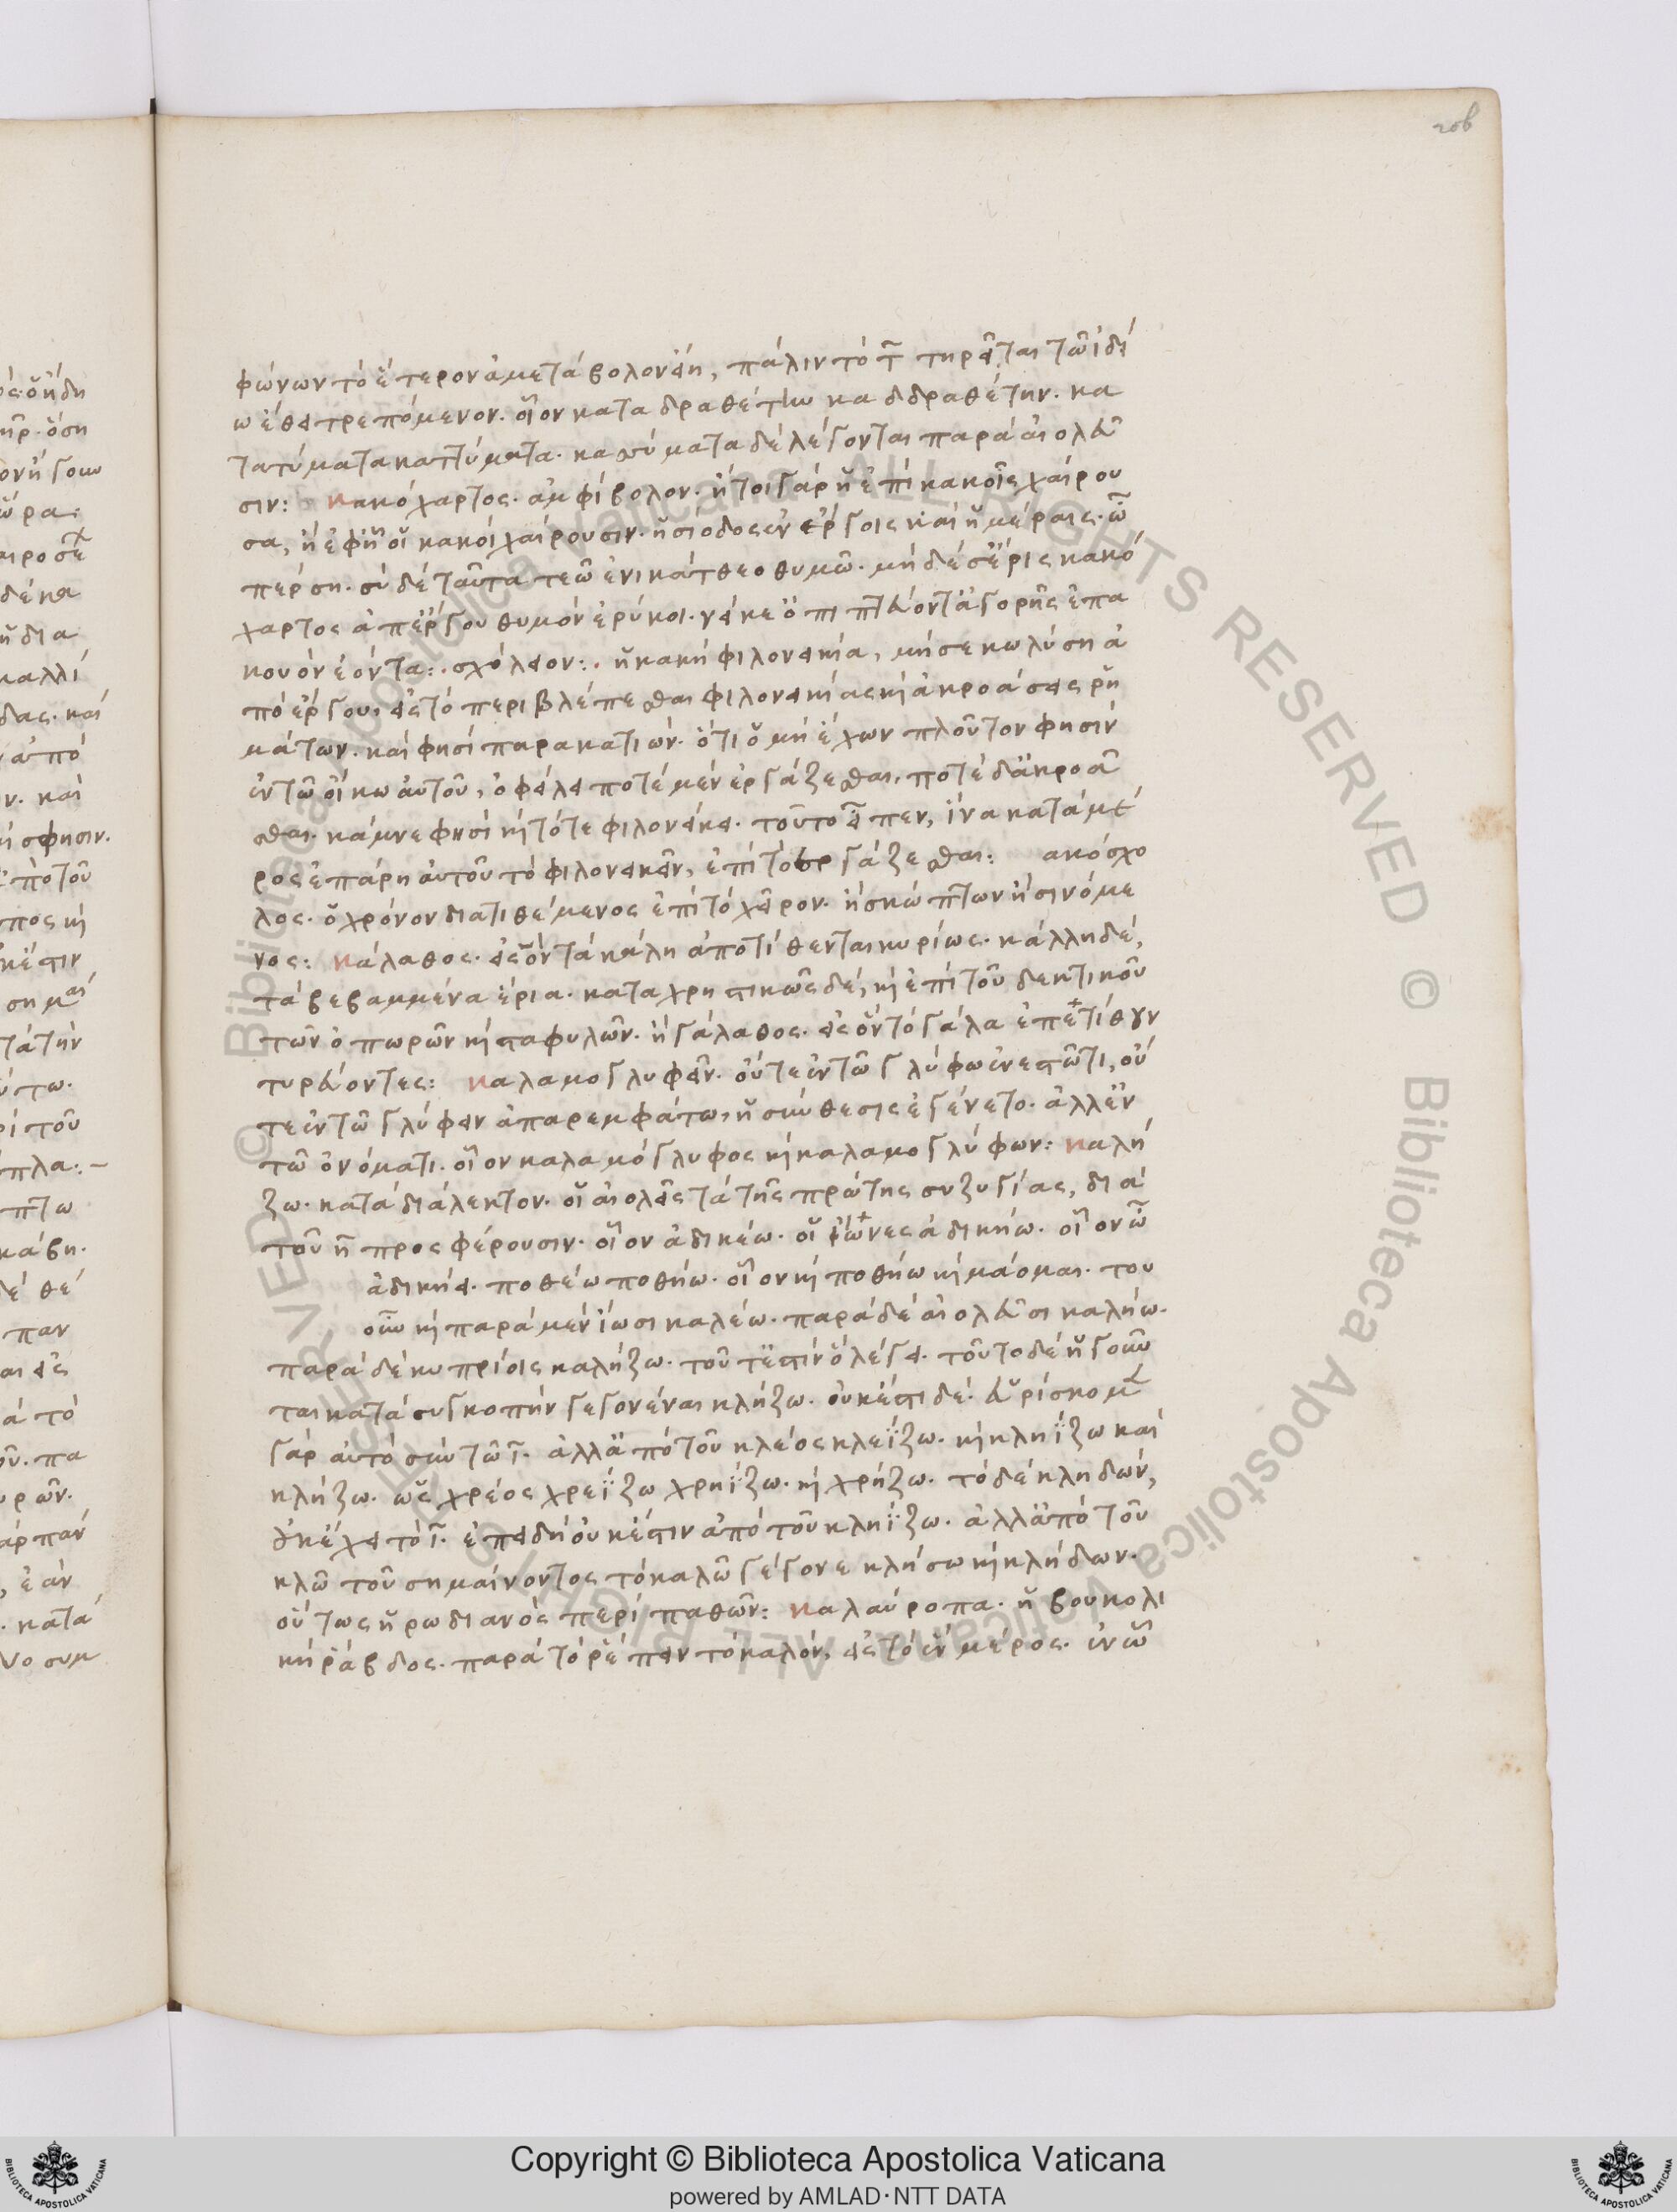 φώνων τὸ ἕτερον ἀμετάβολον εἴη, πάλιν τὸ τ̄ τηρεῖται τῶ ἰδί
ω ἔθει τρεπόμενον. οἷον καταδραθέτην καδδραθέτην. κα
τατύματα καττύματα. καττύματα δὲ λέγονται παρὰ αἰολεῦ
σιν: κακόχαρτος. ἀμφίβολον. ἤτοι γὰρ ἡ ἐπὶ κακοῖς χαίρου
σα, ἢ ἐφ ἧ οἱ κακοὶ χαίρουσιν. ἡσίοδος ἐν ἔργοις καὶ ἡμέραις. ὦ
πέρση. σὺ δὲ ταῦτα τεῶ ἐνικάτθεο θυμῶ. μὴ δέ σ' ἔρις κακό
χαρτος ἀπ' ἔργου θυμὸν ἐρύκοι. νείκε' ὀπιπτεύοντ' ἀγορῆς ἐπα
κουὸν ἐόντα: σχόλιον: ἡ κακὴ φιλονεικία, μή σε κωλύση ἀ
πὸ ἔργου, εἰς τὸ περιβλέπεσθαι φιλονεικίας κὶ ἀκροάσεις ῥη
μάτων. καὶ φησὶ παρακατιών. ὅτι ὁ μὴ ἔχων πλοῦτον φησὶν
ἐν τῶ οἴκω αὐτοῦ, ὀφείλει ποτὲ μὲν ἐργάζεσθαι, ποτὲ δ' ἀκροᾶ
σθαι. κάμνε φησὶ κὶ τότε φιλονείκει. τοῦτο εἶπεν, ἵνα κατὰ μέ
ρος ἐπάρη αὐτοῦ τὸ φιλονεικεῖν, ἐπὶ τὸ ἐργάζεσθαι: ακόσχο
λος. ὁ χρόνον διατιθέμενος ἐπὶ τὸ χεῖρον. ἢ σκώπτων ἢ σινόμε
νος: κάλαθος. εἰς ὃν τὰ κάλη ἀποτίθενται κυρίως. κάλλη δέ,
τὰ βεβαμμένα ἔρια. καταχρηστικῶς δέ, κὶ ἐπὶ τοῦ δεκτικοῦ
τῶν ὀπωρῶν κὶ σταφυλῶν. ἢ γάλαθος. εἰς ὃν τὸ γάλα ἐπετίθουν
τυρεύοντες: καλαμογλυφεῖν. οὔτε ἐν τῶ γλύφω ἐνεστῶτι, οὔ
τε ἐν τῶ γλύφειν ἀπαρεμφάτω, ἡ σύνθεσις ἐγένετο. ἀλλ' ἐν
τῶ ὀνόματι. οἷον καλαμόγλυφος κὶ καλαμογλύφων: καλή
ζω. κατὰ διάλεκτον. οἱ αἰολεῖς τὰ τῆς πρώτης συζυγίας, διὰ
τοῦ η̄ προσφέρουσιν. οἷον ἀδικέω. οἱ ἴωνες ἀδικήω. οἷον ὦ
ἀδικήει. ποθέω ποθήω. οἷον κὶ ποθήω κὶ μάομαι. του
οὖν κὶ παρὰ μὲν ἴωσι καλέω. παρὰ δὲ αἰολεῦσι καλήω.
παρὰ δὲ κυπρίοις καλήζω. τοῦτ' ἔστιν ὃ λέγει. τοῦτο δὲ ἡγοῦν
ται κατὰ συγκοπὴν γεγονέναι κλήζω. οὐκ ἔστι δέ. εὑρίσκομεν
γὰρ αὐτὸ σὺν τῶ ῑ. ἀλλ' ἀπὸ τοῦ κλέος κλεΐζω. κὶ κληΐζω καὶ
κλήζω. ὡς χρέος χρεΐζω χρηΐζω. κὶ χρήζω. τὸ δὲ κληδών,
οὐκ ἔχει τὸ ῑ. ἐπειδὴ οὐκ ἔστιν ἀπὸ τοῦ κληΐζω. ἀλλ' ἀπὸ τοῦ
κλῶ τοῦ σημαίνοντος τὸ καλῶ γέγονε κλήσω κὶ κλήδων.
οὕτως ἡρωδιανὸς περὶ παθῶν: καλαύροπα. ἡ βουκολι
κὴ ῥάβδος. παρὰ τὸ ῥέπειν τὸ καλόν, εἰς τὸ ἓν μέρος. ἐν ὧ